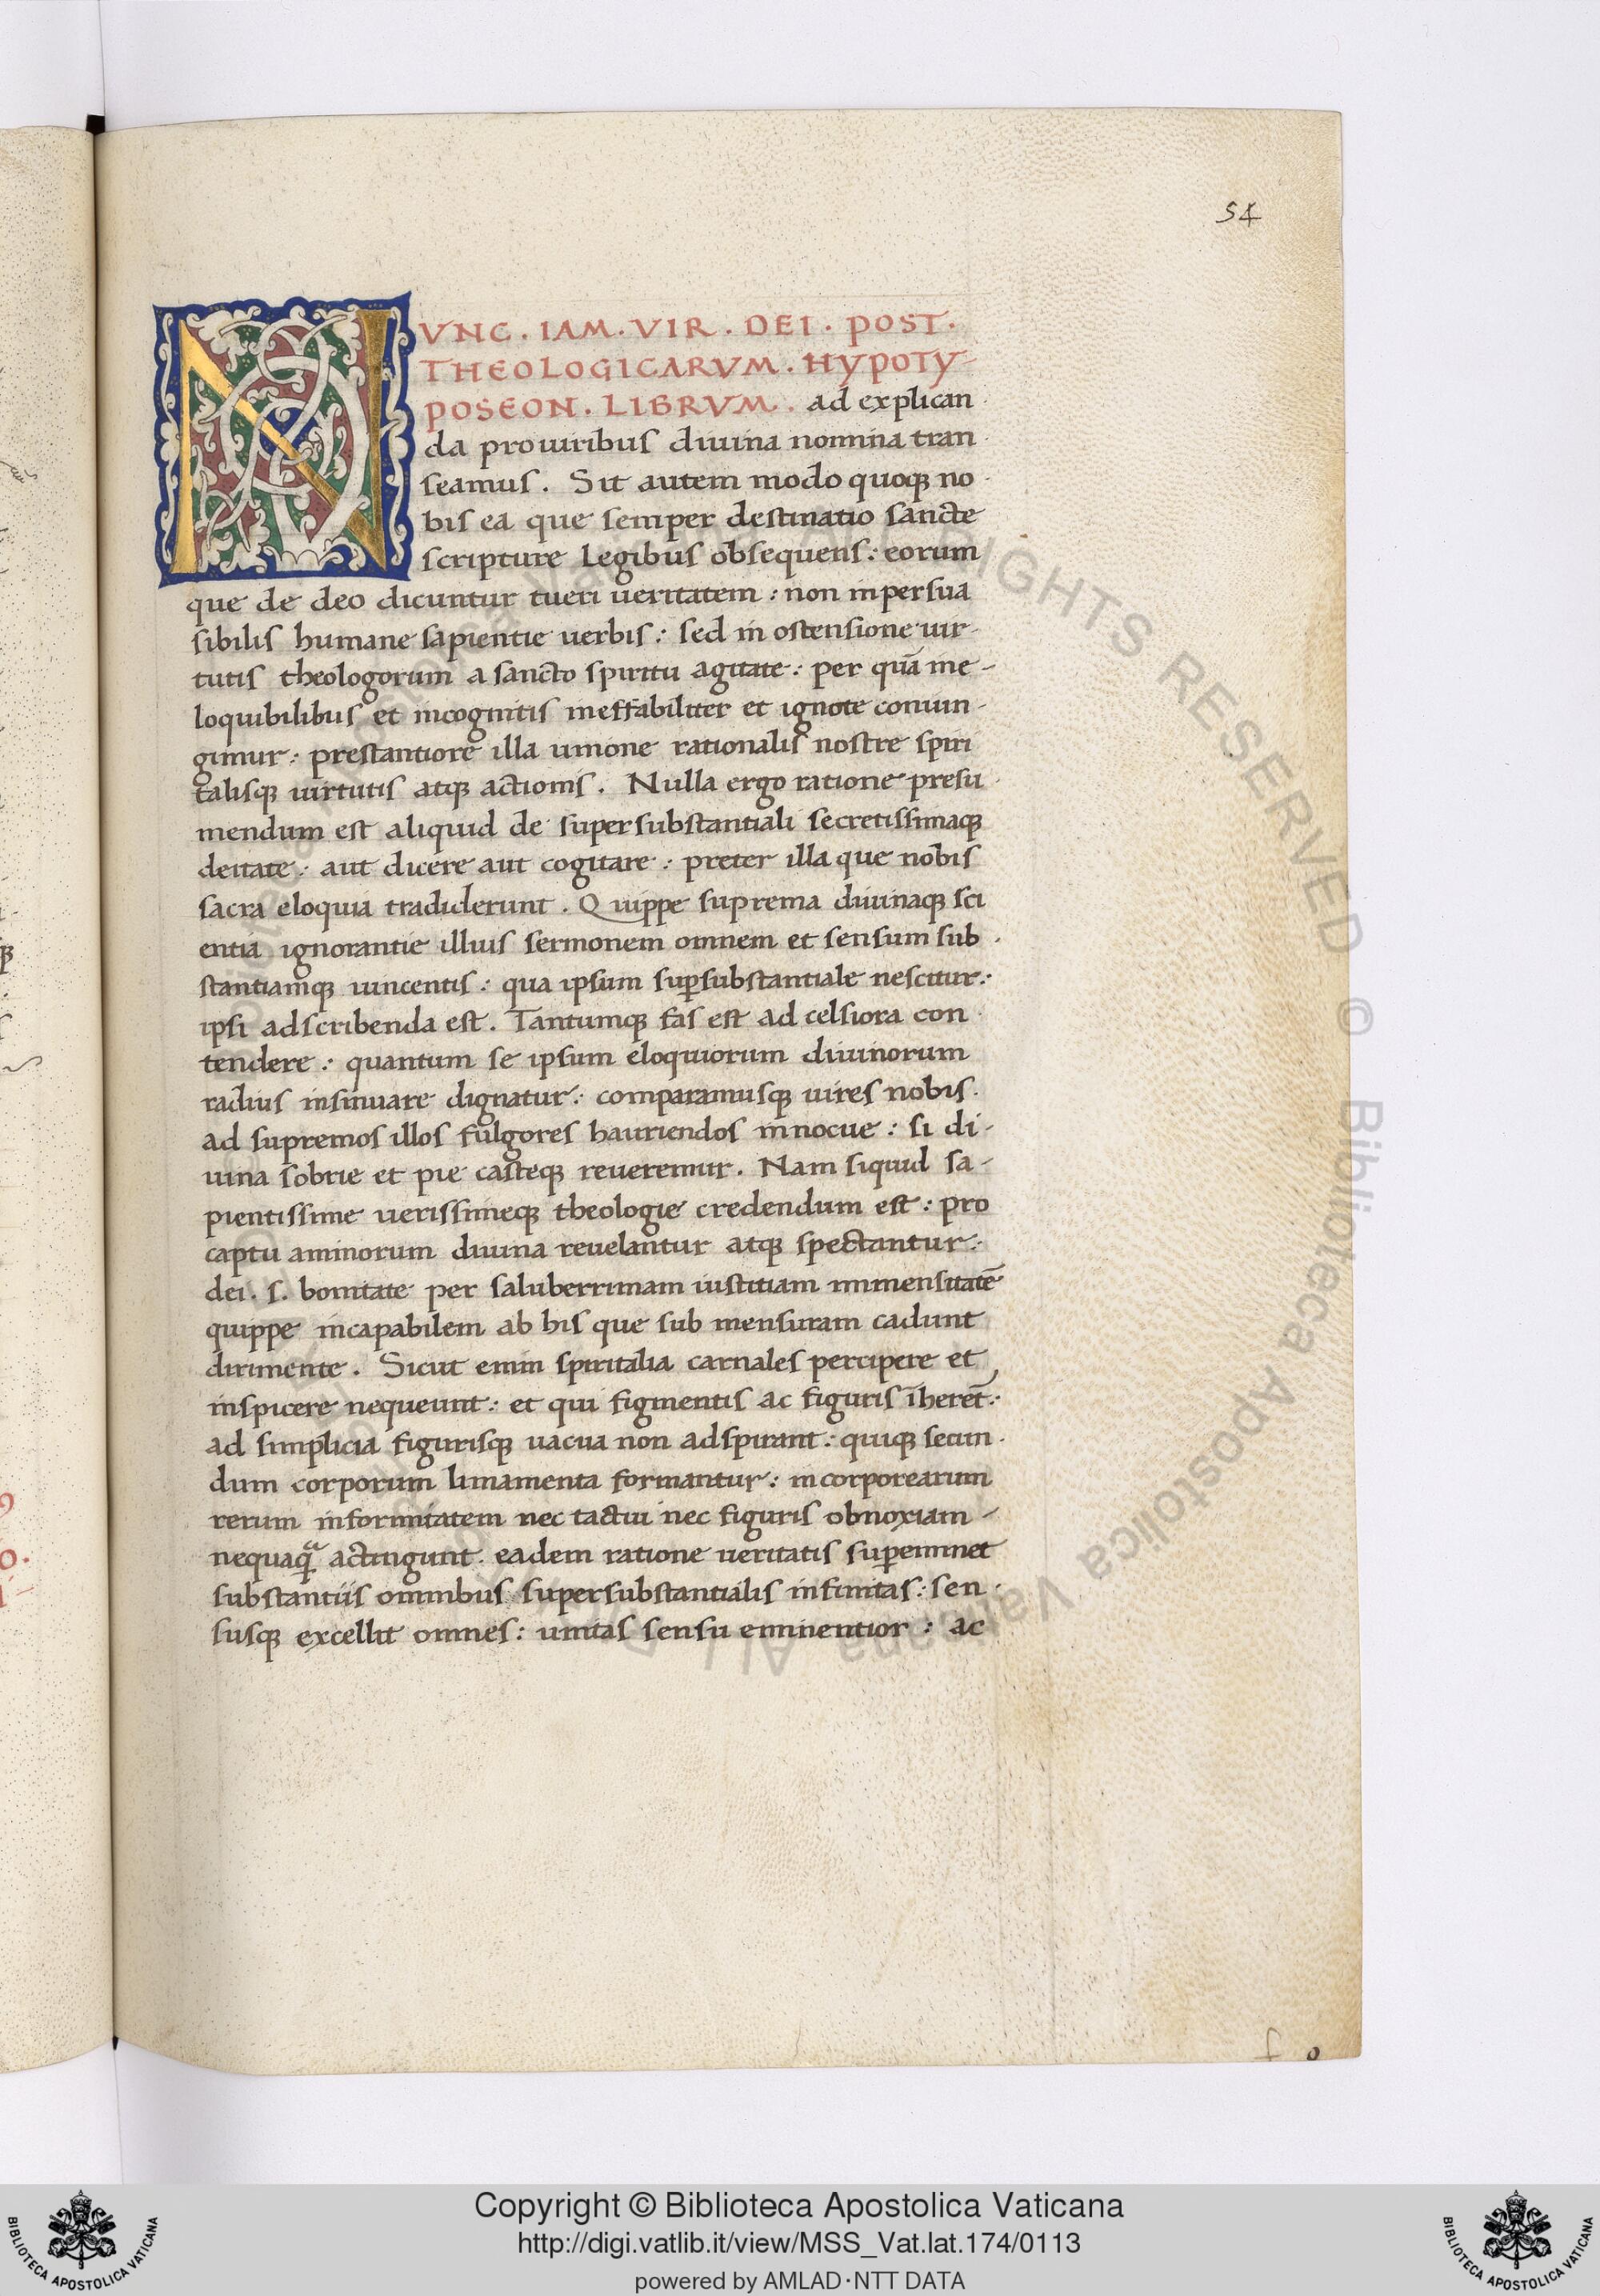 54
NVNC. IAM. VIR. DEI. POST.
THEOLOGICARVM. HYPOTY-
POSEON. LIBRVM. ad explican
da pro uiribus diuina nomina tran
seamus. Sit autem modo quoqꝫ no
bis ea que semper destinatio sancte
scripture legibus obsequens: eorum
que de deo dicuntur tueri ueritatem: non in persua
sibilis humane sapientie uerbis: sed in ostensione uir-
tutis theologorum a sancto spiritu agitate: per quā ine-
loquibilibus et incognitis ineffabiliter et ignote coniun-
gimur: prestantiore illa unione rationalis nostre spiri
talisqꝫ uirtutis atqꝫ actionis. Nulla ergo ratione presu
mendum est aliquid de supersubstantiali secretissimaqꝫ
deitate: aut dicere aut cogitare: preter illa que nobis
sacra eloquia tradiderunt. Quippe suprema diuinaqꝫ sci
entia ignorantie illius sermonem omnem et sensum sub
stantiamqꝫ uincentis: qua ipsum suꝑsubstantiale nescitur:
ipsi adscribenda est. Tantumqꝫ fas est ad celsiora con
tendere: quantum se ipsum eloquiorum diuinorum
radius insinuare dignatur: comparamusqꝫ uires nobis
ad supremos illos fulgores hauriendos innocue: si di-
uina sobrie et pie casteqꝫ reueremur. Nam siquid sa-
pientissime uerissimeqꝫ theologie credendum est: pro
captu aminorum diuina reuelantur atqꝫ spectantur:
dei. s. bonitate per saluberrimam iustitiam immensitatē
quippe incapabilem ab his que sub mensuram cadunt
dirimente. Sicut enim spiritalia carnales percipere et
inspicere nequeunt: et qui figmentis ac figuris īherēt:
ad simplicia figurisqꝫ uacua non adspirant: quiqꝫ secun
dum corporum linamenta formantur: incorporearum
rerum informitatem nec tactui nec figuris obnoxiam
nequaqͣ actingunt. eadem ratione ueritatis suꝑeminet
substantiis omnibus supersubstantialis infinitas: sen
susqꝫ excellit omnes: unitas sensu eminentior: ac
Copyright © Biblioteca Apostolica Vaticana
http://digi.vatlib.it/view/MSS_Vat.lat.174/0113
powered by AMLAD·NTT DATA
BIBLIOTECA APOSTOLICA VATICANA
BIBLIOTECA APOSTOLICA VATICANA